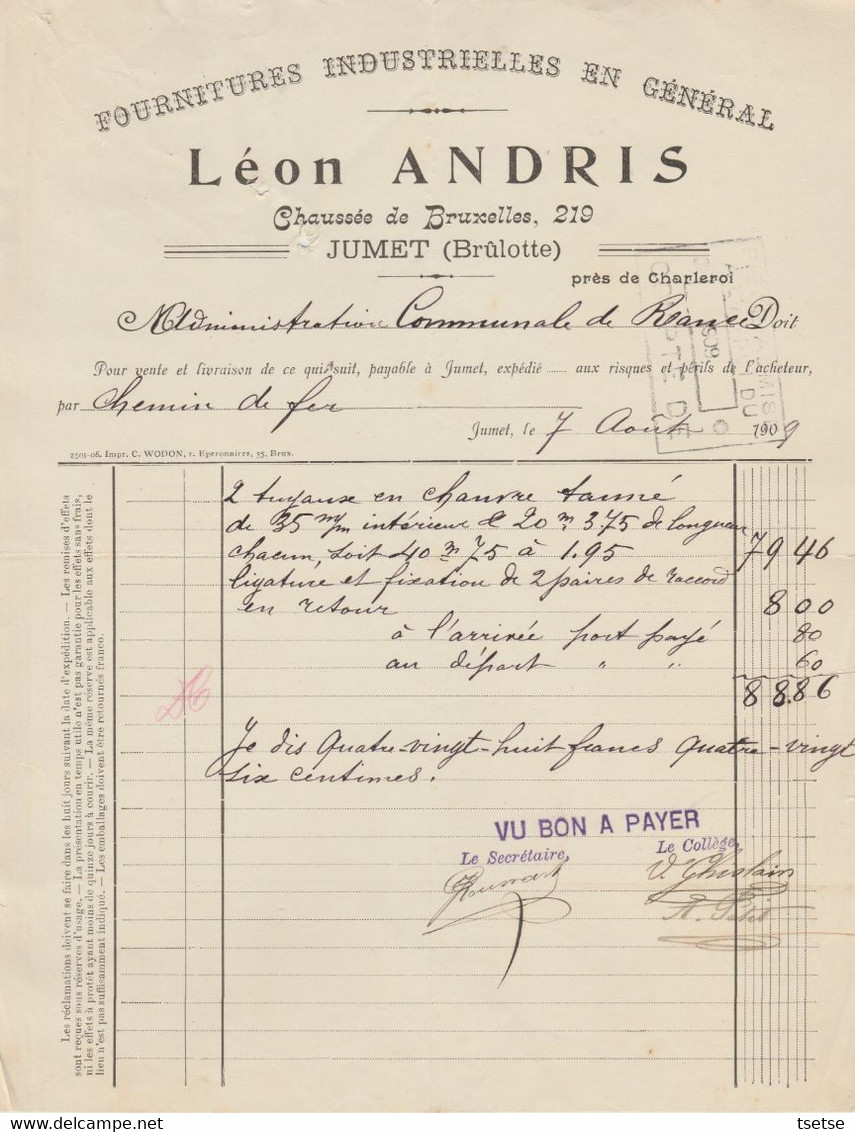 FOURNITURES INDUSTRIELLES EN GÉNÉRAL
Léon ANDRIS
Chaussée de Bruxelles, 219
JUMET (Brûlotte)
près de Charleroi
Administration Communale de Rance Doit
Pour vente et livraison de ce qui suit, payable à Jumet, expédié ...... aux risques et périls de l'acheteur,
par Chemin de fer
Jumet, le 7 Août 1909
2501-06. Impr. C. WODON, r. Eperonniers, 55, Brux.
2 tuyaux en chanvre tanné
de 35 m/m intérieur & 20 m 375 de longueur
chacun, soit 40 m 75 à 1.95 79 46
ligature et fixation de 2 paires de raccord
en retour 8 00
à l'arrivée port payé 80
au départ " " 60
88.86
Je dis quatre-vingt-huit francs quatre-vingt
six centimes.
VU BON A PAYER
Le Secrétaire, Le Collège,
V. Ghislain
Les réclamations doivent se faire dans les huit jours suivant la date d'expédition. — Les remises d'effets
sont reçues sous réserves d'usage. — La présentation en temps utile n'est pas garantie pour les effets sans frais,
ni les effets à protêt ayant moins de quinze jours à courir. — La même réserve est applicable aux effets dont le
lieu n'est pas suffisamment indiqué. — Les emballages doivent être retournés franco.
tsetse